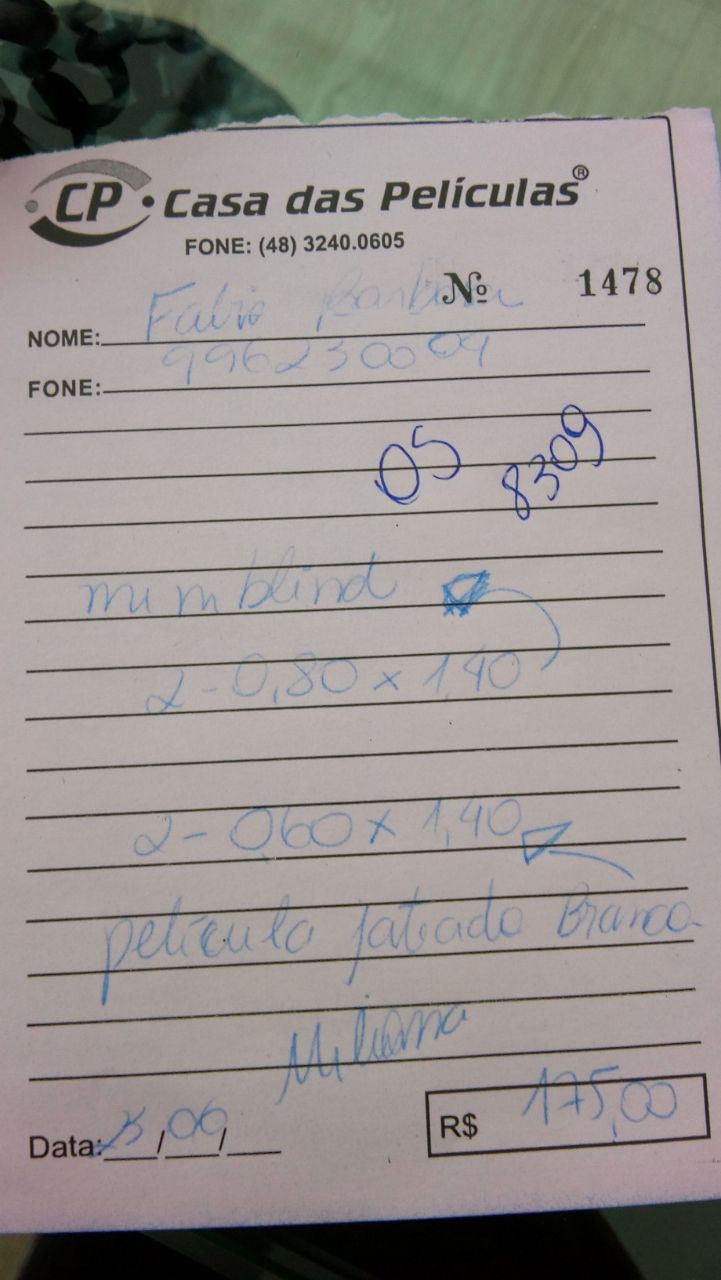 CP • Casa das Películas®
FONE: (48) 3240.0605
Nº 1478
NOME: Fabio Barbosa
FONE: 996230009
05 8309
mini blind
2 - 0,80 x 1,40
2 - 0,60 x 1,40
película jateado Branco
Data: 25/06/
R$ 175,00